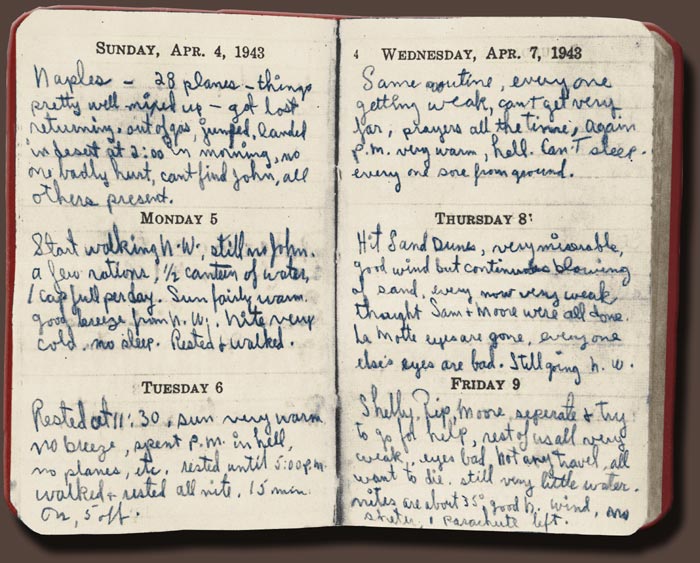 SUNDAY, APR. 4, 1943
Naples — 28 planes — things
pretty well mixed up — got lost
returning, out of gas, jumped, landed
in desert at 2:00 in morning, no
one badly hurt, cant find John, all
others present.
MONDAY 5
Start walking N.W., still no John.
a few rations, 1/2 canteen of water,
1 cap full per day. Sun fairly warm.
good breeze from N.W. Nite very
cold. no sleep. Rested & walked.
TUESDAY 6
Rested at 11:30, sun very warm
no breeze, spent P.M. in hell,
no planes, etc. rested until 5:00 P.M.
walked & rested all nite, 15 min
on, 5 off.
4 WEDNESDAY, APR. 7, 1943
Same routine, every one
getting weak, cant get very
far, prayers all the time, again
P.m. very warm, hell. Can't sleep.
every one sore from ground.
THURSDAY 8
Hit Sand Dunes, very miserable,
good wind but continuous blowing
of sand, every now very weak,
thought Sam & Moore were all done.
La Motte eyes are gone, everyone
else's eyes are bad. Still going N.W.
FRIDAY 9
Shelly, Rip, Moore, seperate & try
to go for help, rest of us all very
weak, eyes bad, not any travel, all
want to die. still very little water.
nites are about 35° good N. wind, no
shelter, 1 parachute left.